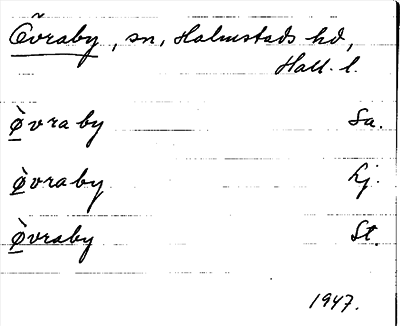 Övraby, sn, Halmstads hd,
Hall. l.
ø̠̀vraby Sa.
ø̠̀vraby Lj.
ø̠̀vraby St.
1947.